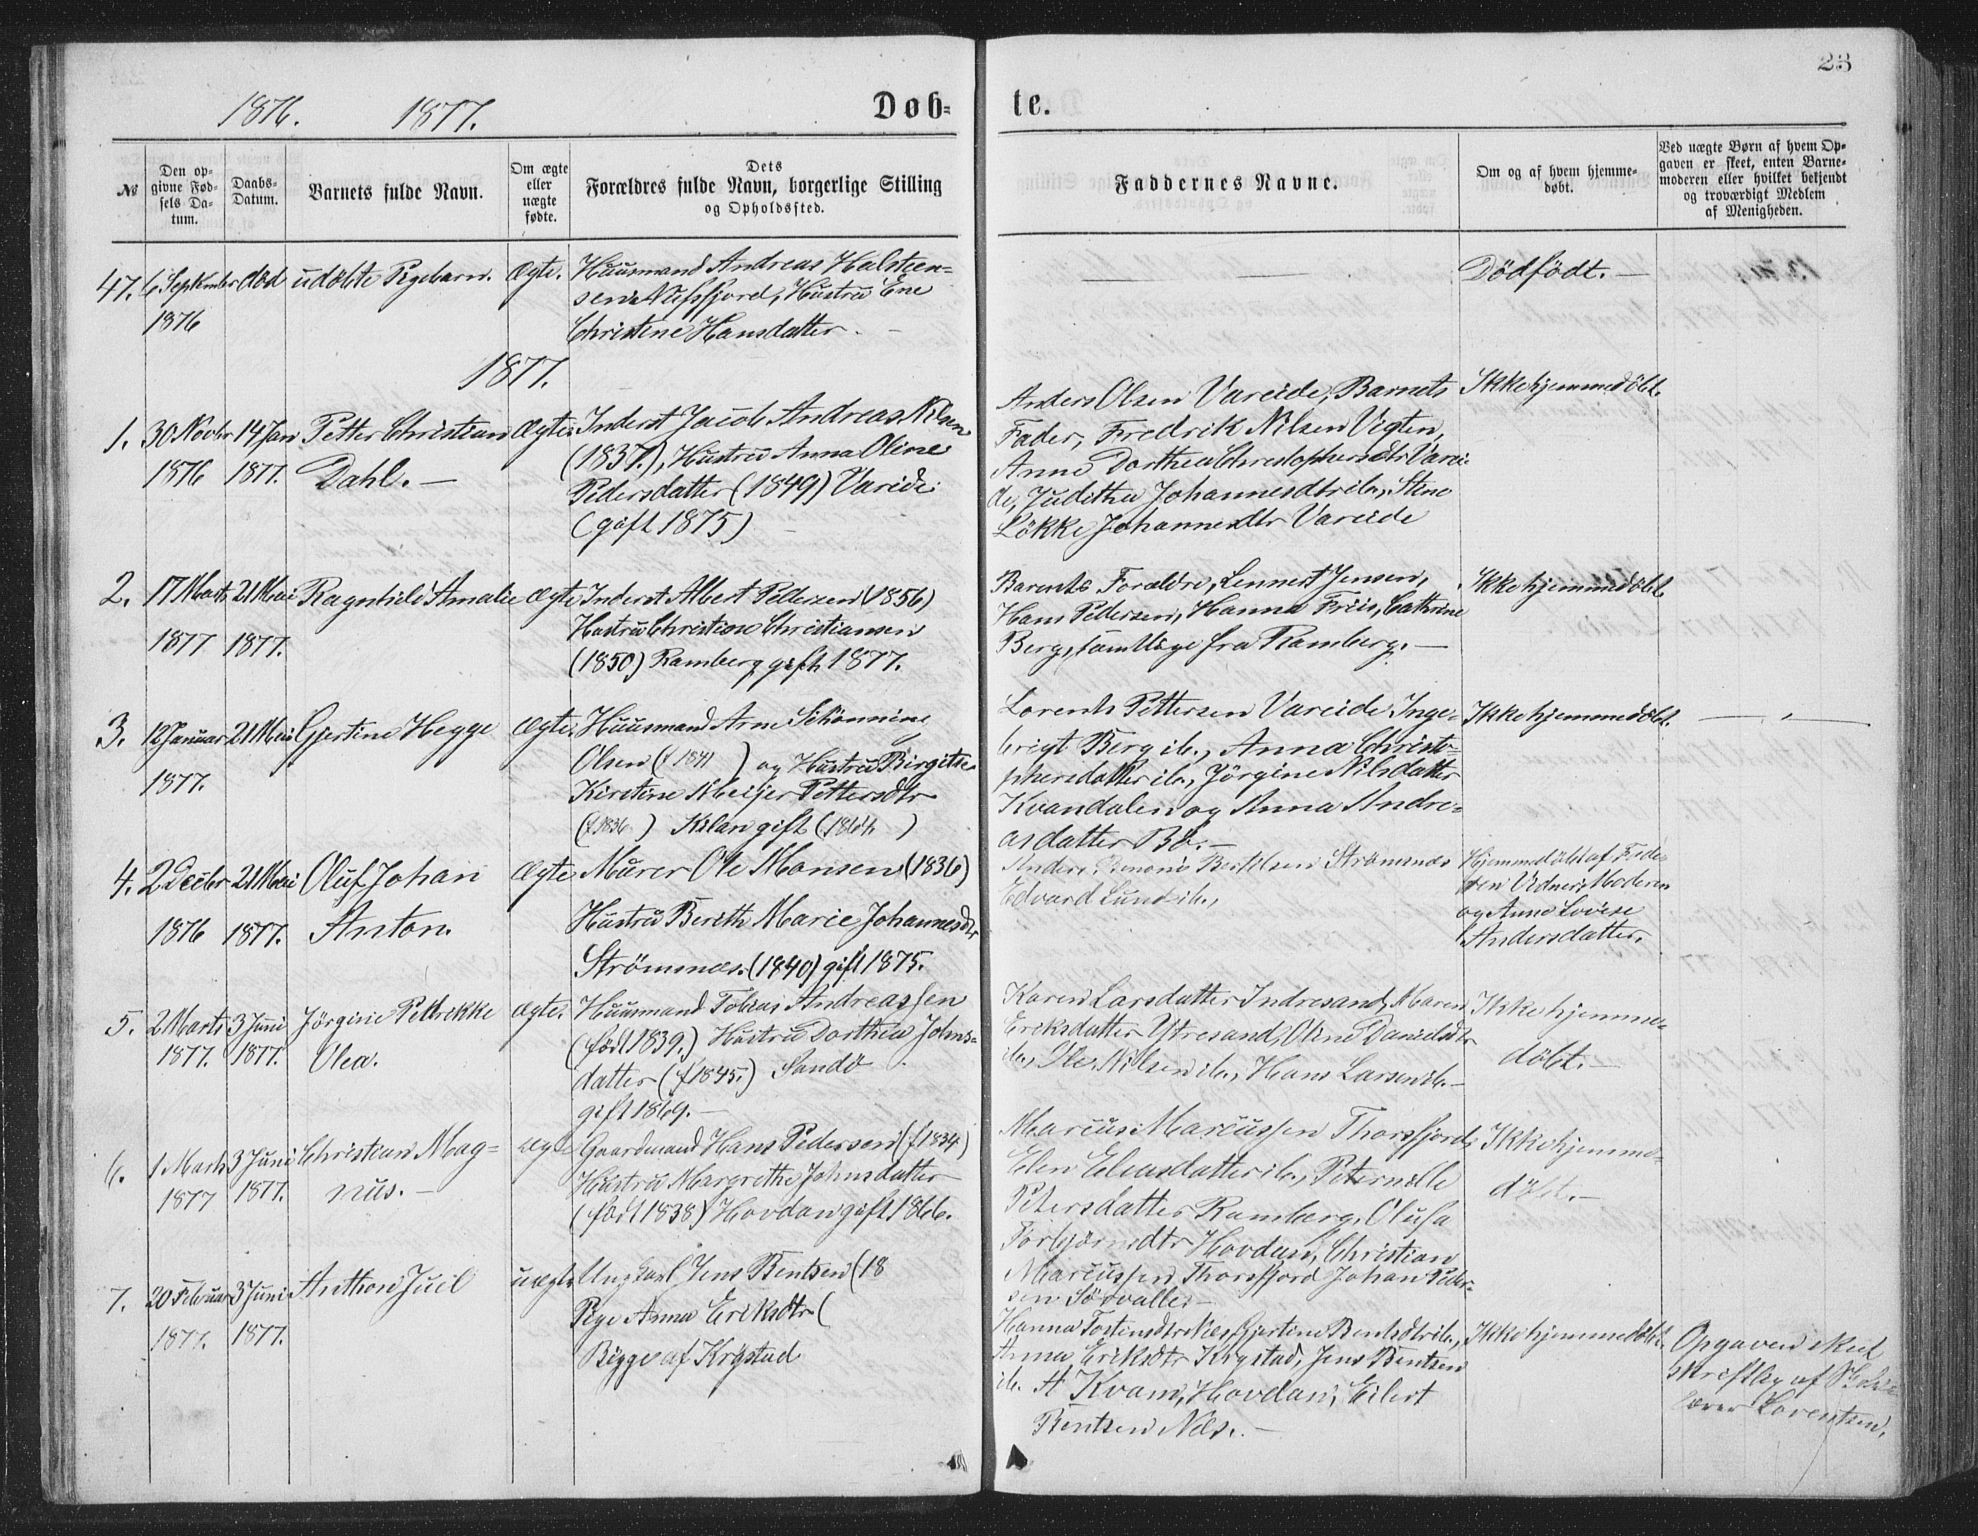 23
1876. 1877. Døb- te.
№
Den op-
givne Fød-
sels Da-
tum.
Daabs-
Datum.
Barnets fulde Navn.
Om ægte
eller
uægte
fødte.
Dets
Forældres fulde Navn, borgerlige Stilling
og Opholdssted.
Faddernes Navne.
Om og af hvem hjemme-
døbt.
Ved uægte Børn af hvem Op-
gaven er skeet, enten Barne-
moderen eller hvilket bekjendt
og troværdigt Medlem
af Menigheden.
47. 6 September død udöbte Pigebarn. Ægte.
1876
Huusmand Andreas Halsteen-
sen Nufsfjord, Hustru Ene
Christine Hansdatter.
Dödfödt.
1877.
1. 30 Novbr 14 Jan Petter Christian Ægte
1876 1877. Dahl.
Inderst Jacob Andreas Nilsen
(1837.), Hustru Anna Oline
Pedersdatter (1849) Vareide
(gift 1875)
Anders Olsen Vareide, Barnets
Fader, Fredrik Nilsen Vigten,
Anne Dorthea Christophersdtr Varei-
de, Juditha Johannesdtr ib., Stene
Lökke Johannesdtr Vareide
Ikke hjemmedöbt.
2. 17 Marts 21 Mai Ragnhild Amalie Ægte
1877 1877.
Inderst Albert Pedersen (1856)
Hustru Christine Christiansen
(1850) Ramberg gift 1877.
Barents Forældre, Lennert Jensen,
Hans Pedersen, Hanna Friis, Cathrine
Berg, samtlige fra Ramberg.
Ikke hjemmedöbt.
3. 12 Januar 21 Mai Gjertine Hegge Ægte
1877.
Huusmand Arne Schönning
Olsen (f 1841 ) og Hustru Birgitte
Kirstine Meijer Pettersdtr
(f 1836 ) Kilan gift (1864 )
Lorents Pettersen Vareide Inge-
brigt Berg ib., Anna Christo-
phersdatter ib., Jörgine Nilsdatter
Kvandalen og Anna Andre-
asdatter Bö.
Ikke hjemmedöbt.
4. 2 Decbr 21 Mai Oluf Johan Ægte
1876 1877. Anton.
Murer Ole Monsen (1836)
Hustru Berith Marie Johannesdtr
Strömsnæs. (1840) gift 1875.
Anders Benoni Bertelsen Strömsnæs
Edvard Lund ib.,
Hjemmedöbt af Fade-
ren Vidner, Moderen
og Anne Lovise
Andersdatter.
5. 2 Marts 3 Juni Jörgine Petrikke ægte.
1877. 1877. Olea.
Huusmand Tobias Andreassen
(född 1839.) Hustru Dorthea Johns-
datter (f 1845.) Sandö
gift 1869.
Karen Larsdatter Indresand, Maren
Eriksdatter Ytresand, Oline Danielsdtr
ib., Ole Nilsen ib., Hans Larsen ib.
Ikke hjemme-
döbt.
6. 1 Marts 3 Juni Christian Mag- ægte
1877 1877. nus.
Gaardmand Hans Pedersen (f 1834)
Hustru Margrethe Johnsdatter
(född 1838) Hovdan gift 1866.
Marcus Marcussen Thorsfjord,
Elen Eliasdatter ib., Peternelle
Petersdatter Ramberg, Olufa
Torbjörnsdtr Hovdan, Christian
Marcussen Thorsfjord Johan Peder-
sen Sörvallei
Ikke hjemme-
döbt.
7. 20 Februar 3 Juni Anthon Juel uægte
1877. 1877.
Ungkarl Jens Bentsen (18
Pige Anna Eriksdtr (
Begge af Krystad
Hanna Tostensdtr Næs, Gjertine Bentsdtr ib.,
Anna Eriksdtr Krystad, Jens Bentsen
ib. A Kvam, Hovdan, Eilert
Bentsen Næs.
Ikke hjemmedöbt.
Opgaven skeet
skriftlig af Skole-
lærer Lorentsen.